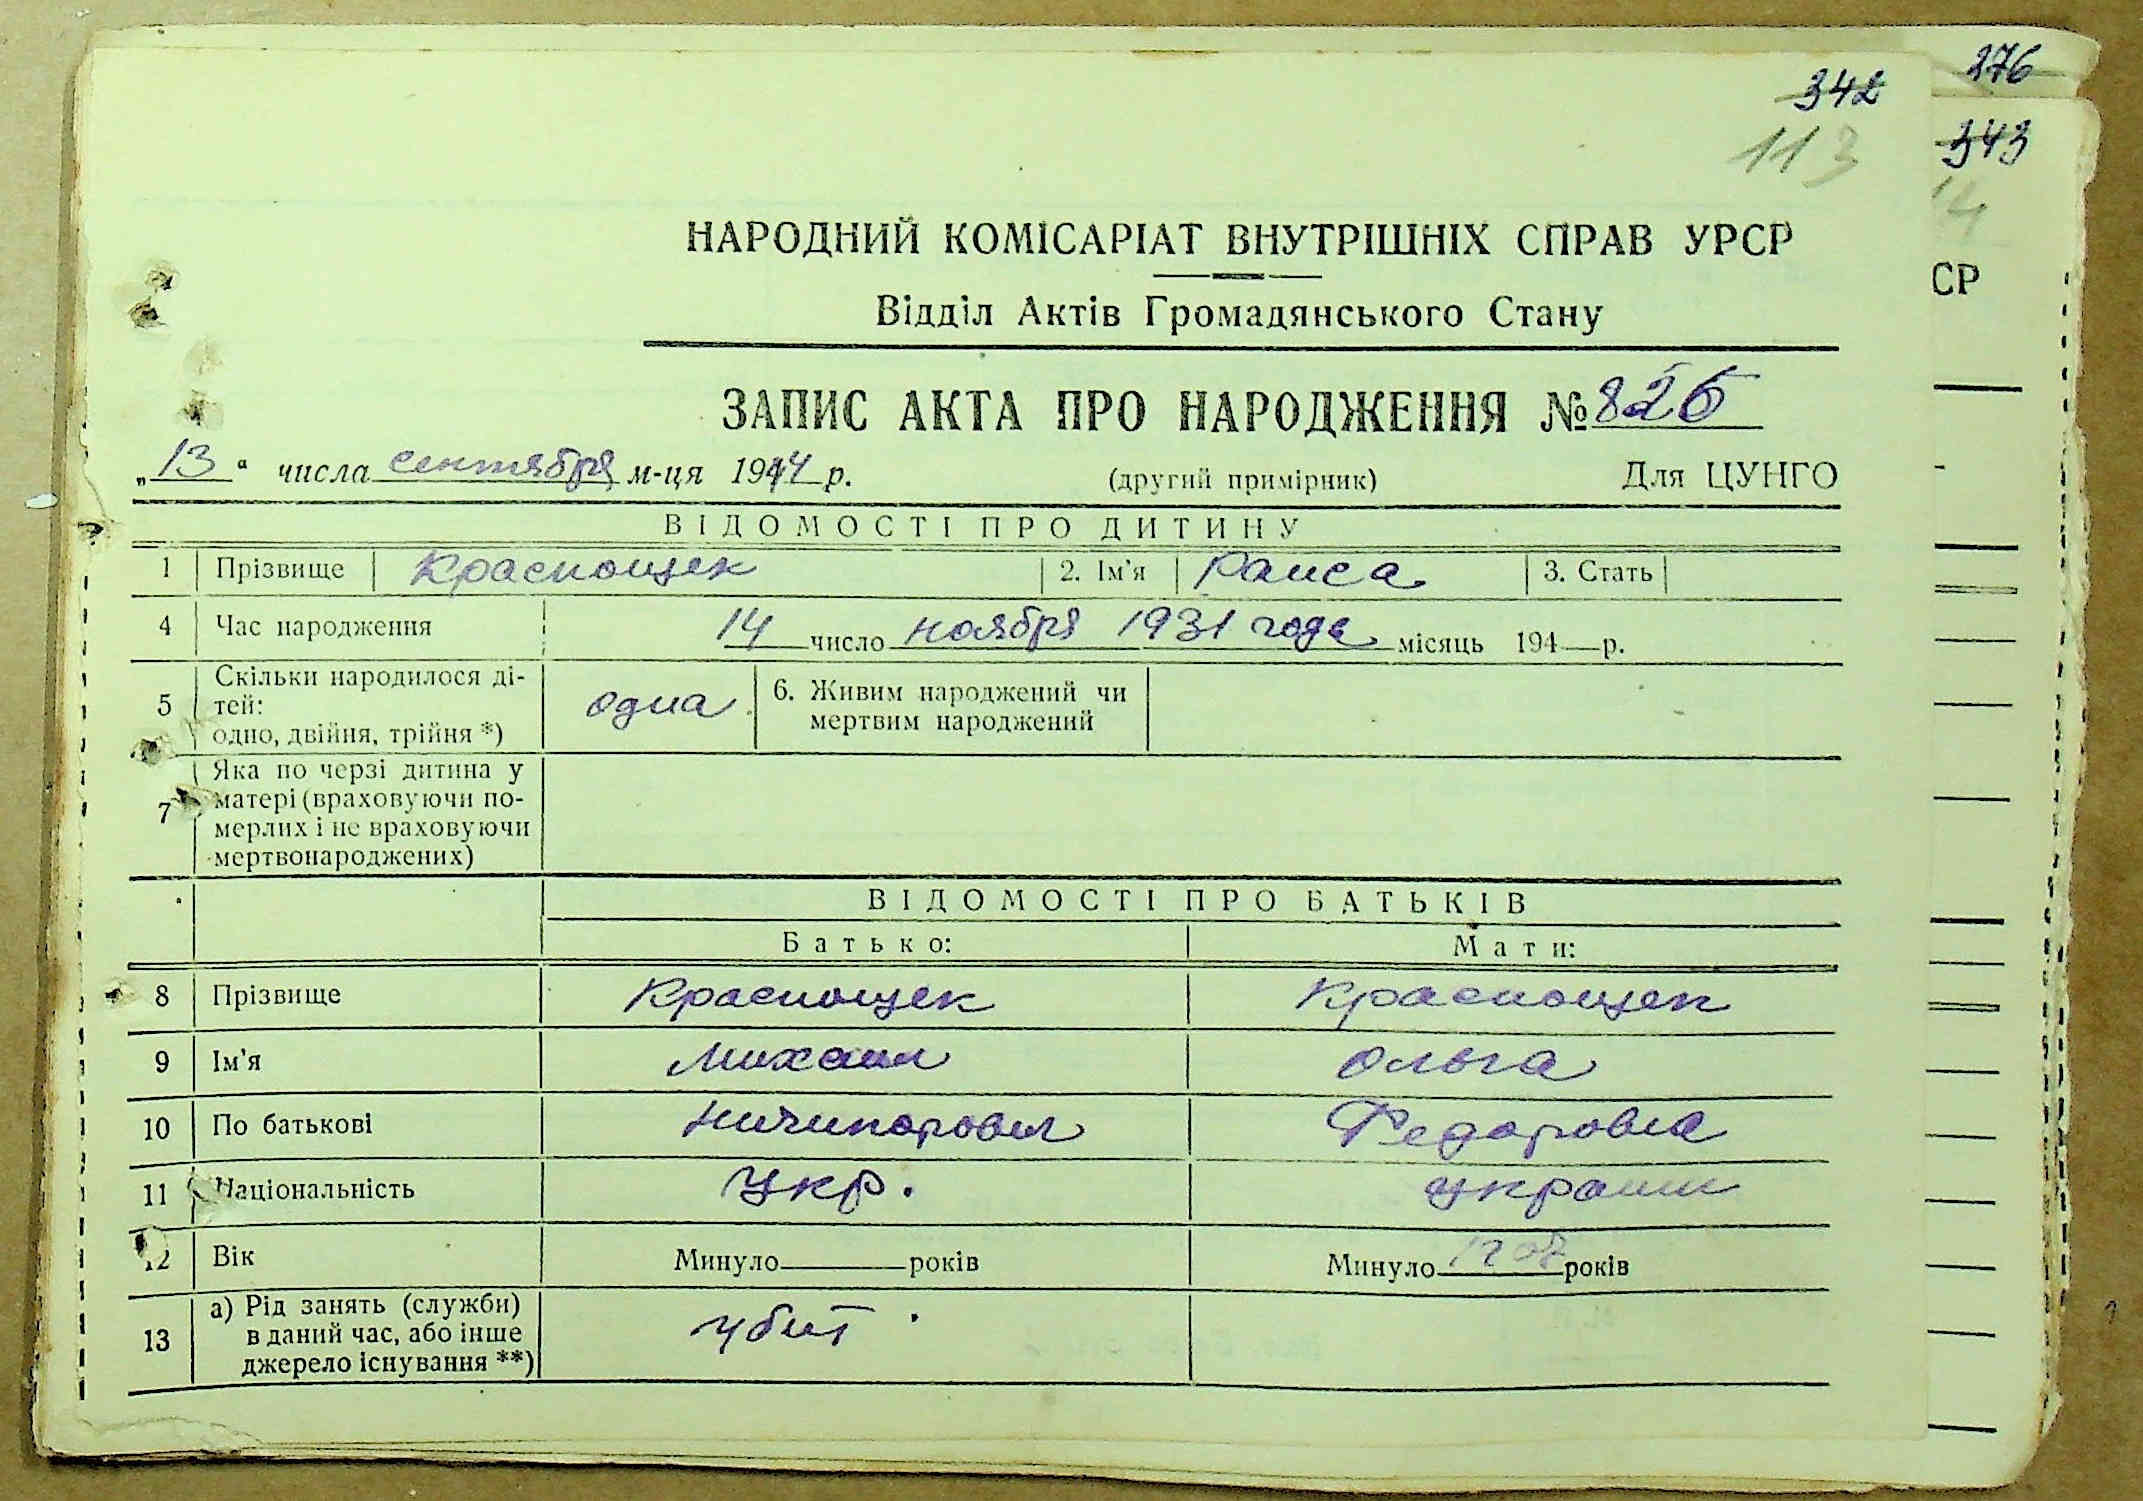 276
342
343
113
14
НАРОДНИЙ КОМІСАРІАТ ВНУТРІШНІХ СПРАВ УРСР
СР
Відділ Актів Громадянського Стану
ЗАПИС АКТА ПРО НАРОДЖЕННЯ № 826
„13“ числа сентября м-ця 1944 р. (другий примірник) Для ЦУНГО
ВІДОМОСТІ ПРО ДИТИНУ
1 Прізвище Краснощек 2. Ім'я Раиса 3. Стать
4 Час народження 14 число ноября 1931 года місяць 194 р.
5 Скільки народилося ді-
тей:
одно, двійня, трійня *) одна 6. Живим народжений чи
мертвим народжений
7 Яка по черзі дитина у
матері (враховуючи по-
мерлих і не враховуючи
мертвонароджених)
ВІДОМОСТІ ПРО БАТЬКІВ
Батько: Мати:
8 Прізвище Краснощек Краснощек
9 Ім'я Михаил Ольга
10 По батькові Ничипорович Федоровна
11 Національність Укр. украин
12 Вік Минуло років Минуло років
13 а) Рід занять (служби)
в даний час, або інше
джерело існування **) убит